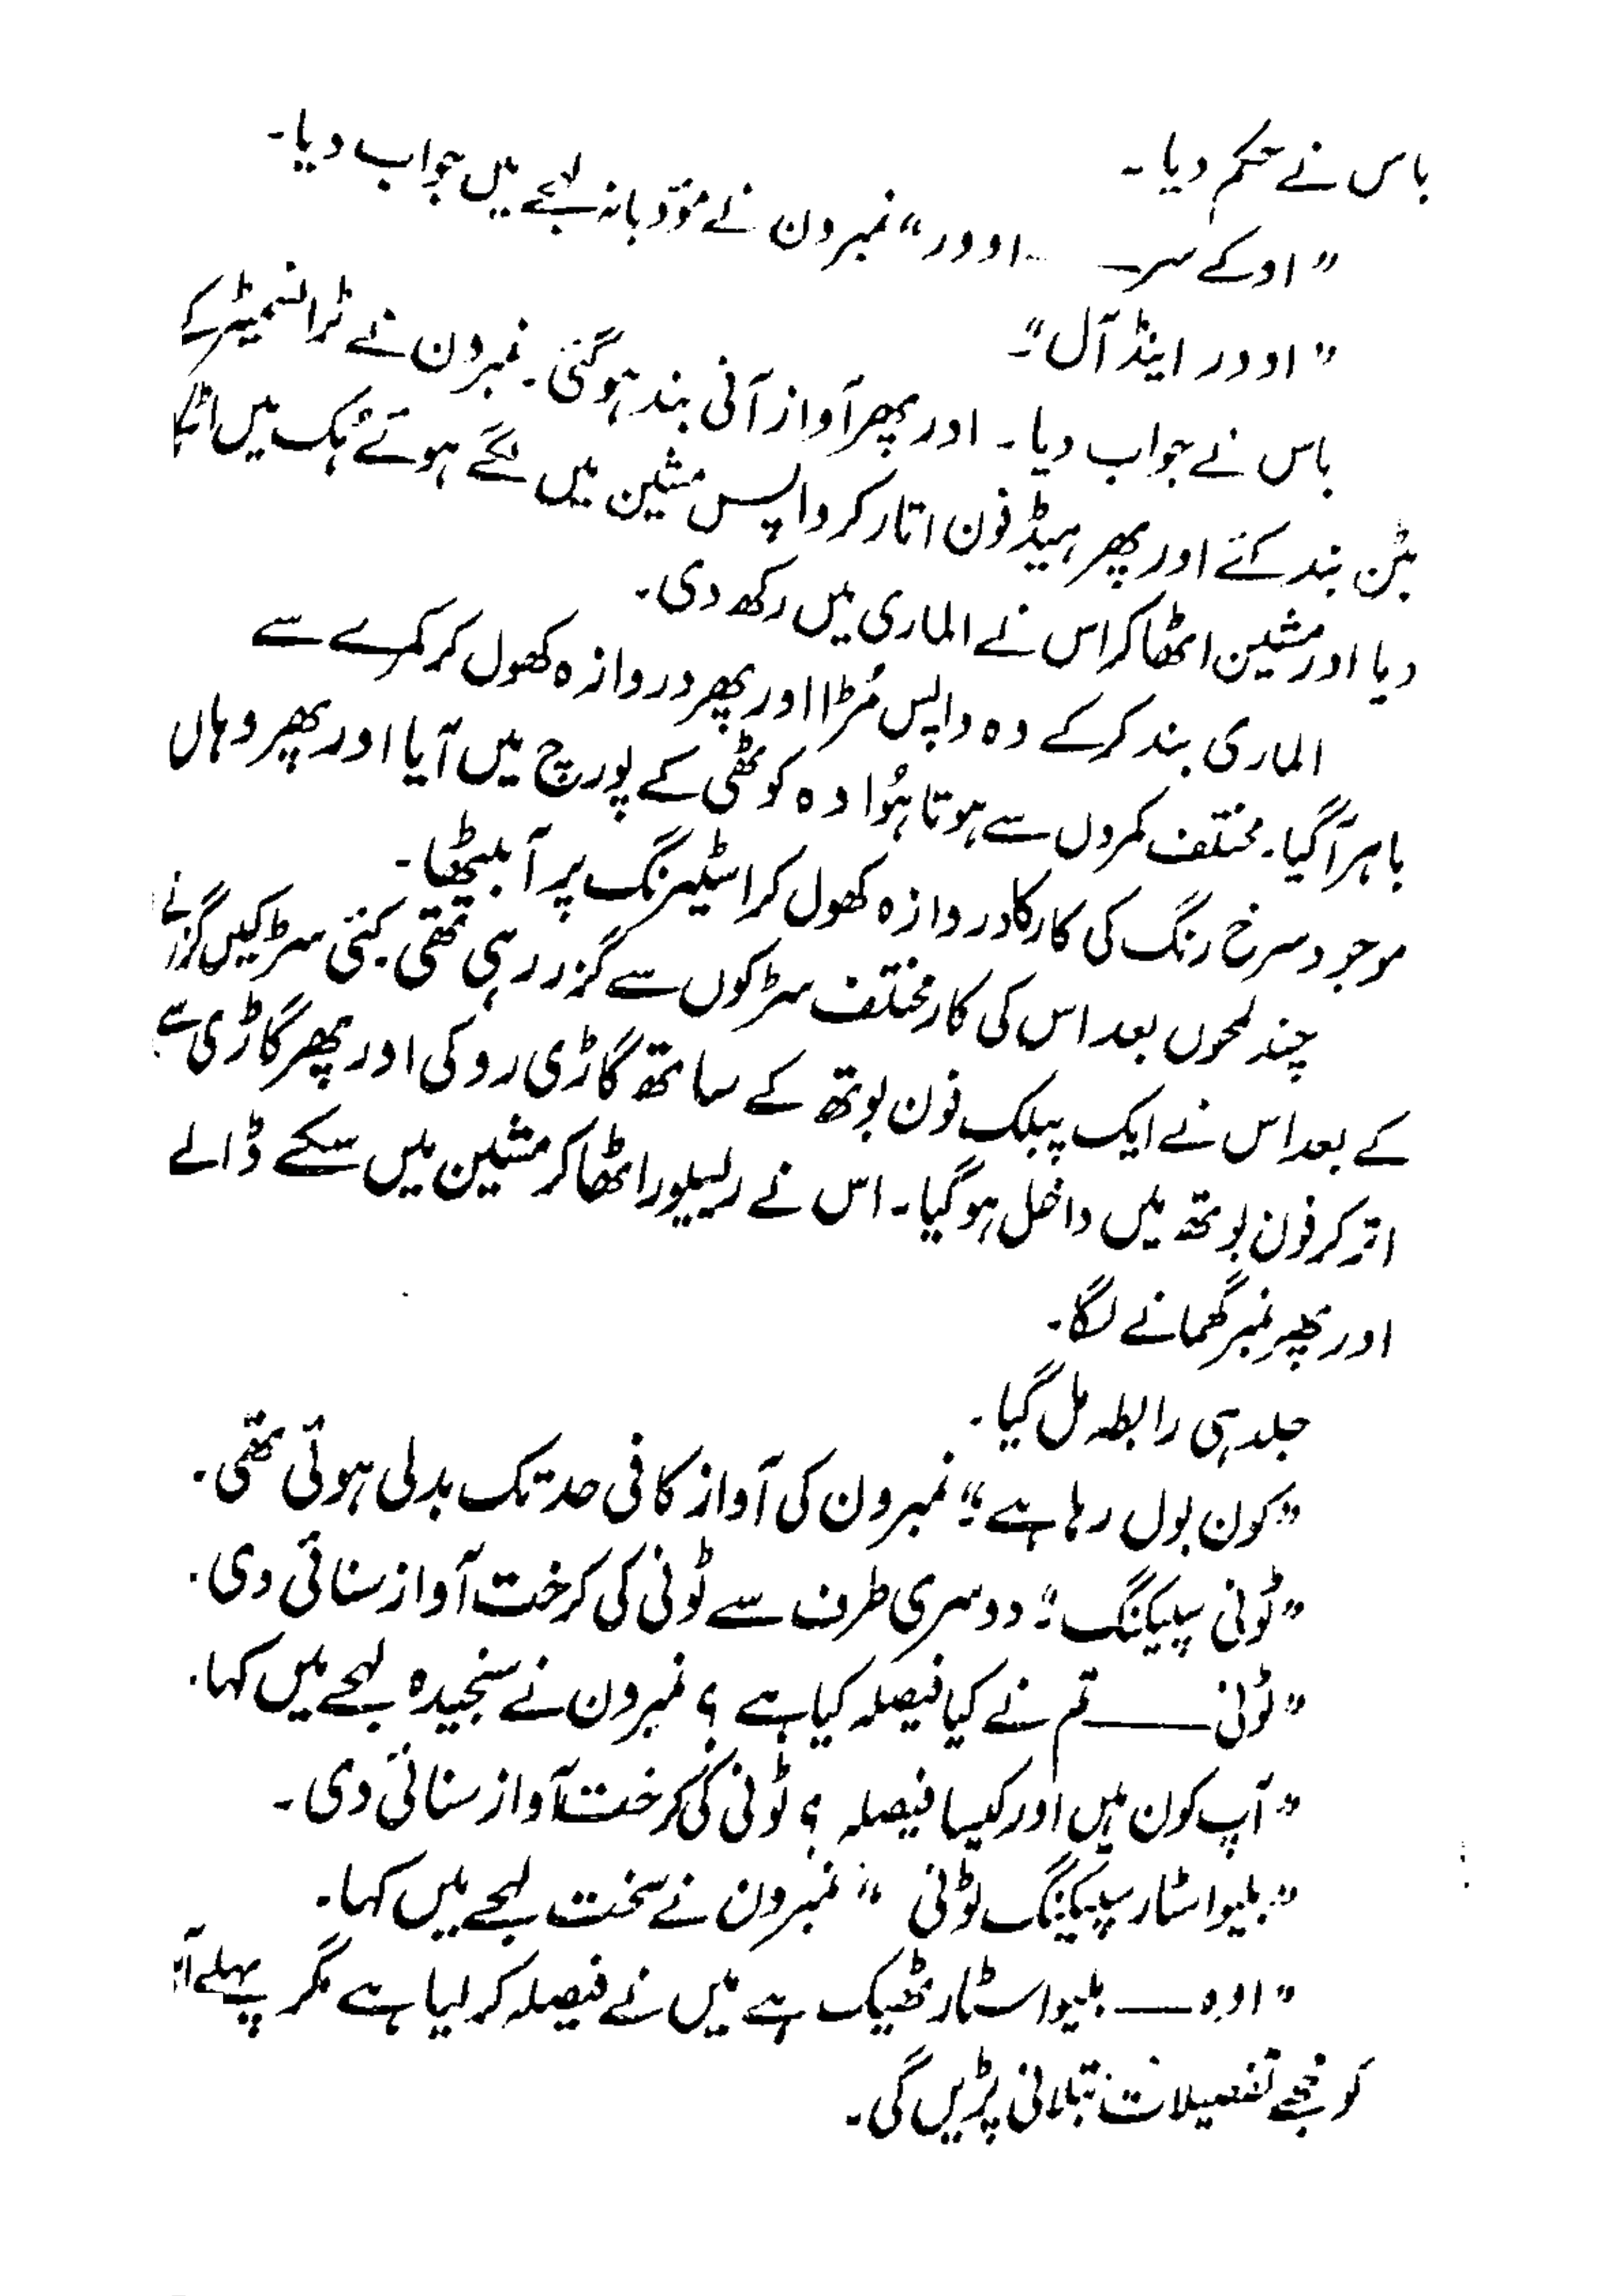 باس نے حکم دیا۔
”اوکے سر ــــ اوور“ نمبرون نے مؤدبانہ لہجے میں جواب دیا۔
”اوور اینڈ آل“۔
باس نے جواب دیا۔ اور پھر آواز آنی بند ہوگئی۔ نمبرون نے ٹرانسمیٹر کے
بٹن بند کئے اور پھر ہیڈ فون اتار کر واپس مشین میں لگے ہوئے ہُک میں اٹکا
دیا اور مشین اٹھا کر اس نے الماری میں رکھ دی۔
الماری بند کرکے وہ واپس مُڑا اور پھر دروازہ کھول کر کمرے سے
باہر آگیا۔ مختلف کمروں سے ہوتا ہُوا وہ کوٹھی کے پورچ میں آیا اور پھر وہاں
موجود سرخ رنگ کی کار کا دروازہ کھول کر اسٹیرنگ پر آ بیٹھا۔
چند لمحوں بعد اس کی کار مختلف سڑکوں سے گزر رہی تھی کئی سڑکیں گزرنے
کے بعد اس نے ایک پبلک فون بوتھ کے ساتھ گاڑی روکی اور پھر گاڑی سے
اتر کر فون بوتھ میں داخل ہوگیا۔ اس نے ریسیور اٹھا کر مشین میں سکے ڈالے
اور پھر نمبر گھمانے لگا۔
جلد ہی رابطہ مل گیا۔
”کون بول رہا ہے“؟ نمبرون کی آواز کافی حد تک بدلی ہوئی تھی۔
”ٹونی سپیکنگ“؛ دوسری طرف سے ٹونی کی کرخت آواز سنائی دی۔
”ٹونی ــــ تم نے کیا فیصلہ کیا ہے؟ نمبرون نے سنجیدہ لہجے میں کہا۔
”آپ کون ہیں اور کیسا فیصلہ؟ ٹونی کی کرخت آواز سنائی دی۔
”بلیو اسٹار سپیکنگ ٹونی“ نمبرون نے سخت لہجے میں کہا۔
”اوہ ــــ بلیو اسٹار ٹھیک ہے میں نے فیصلہ کر لیا ہے مگر پہلے
کو مجھے تفصیلات بتلانی پڑیں گی۔